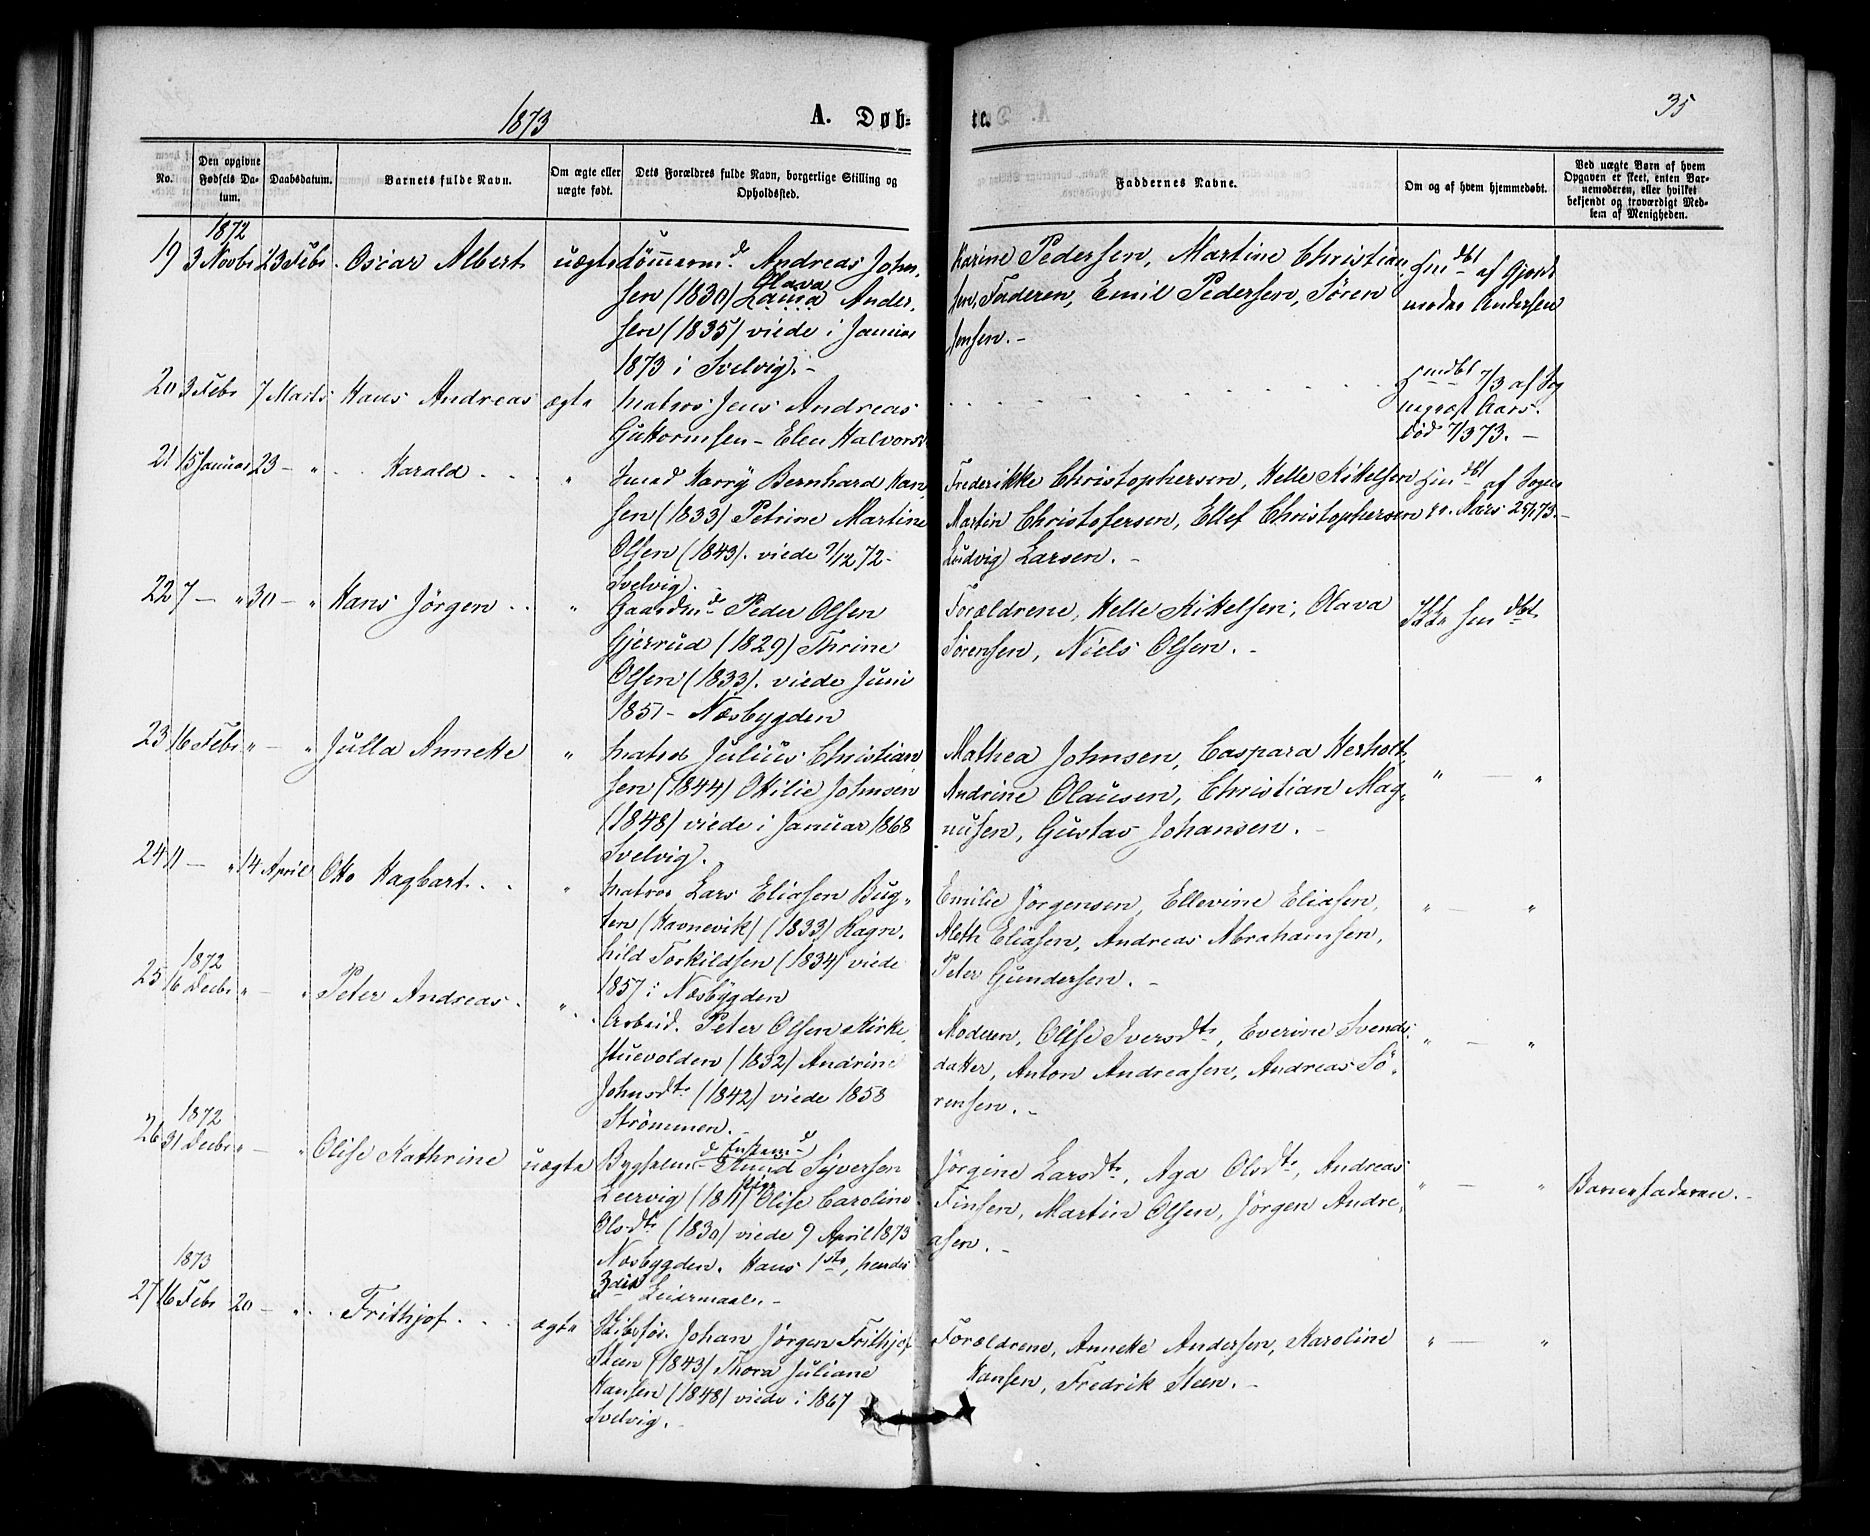 1873
A. Døb-
te.
35
No.
Den opgivne
Fødsels Da-
tum.
Daabsdatum.
Barnets fulde Navn.
Om ægte eller
uægte født.
Dets Forældres fulde Navn, borgerlige Stilling og
Opholdssted.
Faddernes Navne.
Om og af hvem hjemmedøbt.
Ved uægte Børn af hvem
Opgaven er skeet, enten Bar-
nemoderen, eller hvilket
bekjendt og troværdigt Med-
lem af Menigheden.
1872
19 3 Novbr 23 Febr. Oscar Albert uægte Tömmermd. Andreas John-
sen (1830) Olava Laura Ander-
sen (1835) viede i Januar
1873 i Svelvig. -
Karine Pedersen, Martine Christian-
sen, Faderen, Emil Pedersen, Sören
Jensen. -
Hmdbt af Gjord-
moder Andersen
20 3 Febr 7 Marts Hans Andreas ægte Matros Jens Andreas
Guttormsen - Elen Halvorsd
Hmdbt 7/3 af Sog
nepræst Aars.
död 7/3 73. -
21 15 Januar 23 - " Harald " Smed Harry Bernhard Han-
sen (1833) Petrine Martine
Olsen (1843). viede 7/12 72 -
Svelvig. -
Frederikke Christophersen, Helle Kittelsen
Martin Christofersen, Ellef Christophersen
Ludvig Larsen. -
Hmdbt af Sogne
pr. Aars 25/1 73. -
22 7 - " 30 - " Hans Jörgen " Gaardmd. Peder Olsen
Gjerrud (1829) Thrine
Olsen (1833). viede Juni
1851 - Næsbygden
Forældrene, Helle Kittelsen, Olava
Sörensen, Niels Olsen. -
Ikke Hmdbt
23 16 Febr " - " Julla Annette " Matros Julius Christian-
sen (1844) Ottilie Johnsen
(1848) viede i Januar 1868
Svelvig.
Mathea Johnsen, Caspara Herholt,
Andrine Olausen, Christian Mag-
nusen, Gustav Johansen. -
" - "
24 11 - " 14 April Otto Hagbart. " Matros Lars Eliasen Bug-
ten (Havnevik) (1833) Ragn-
hild Torkildsen (1834) viede
1857 i Næsbygden
Emilie Jörgensen, Ellevine Eliasen,
Aleth Eliasen, Andreas Abrahamsen,
Peter Gundersen. -
" - "
1872
25 16 Decbr " - " Peter Andreas. " Arbeid. Peter Olsen Kirke-
stuevolden (1832) Andrine
Johnsdtr (1842) viede 1858
Strömmen. -
Moderen, Olise Iversdtr, Everine Svends-
datter, Anton Andreasen, Andreas Sö-
rensen. -
" - "
1872
26 31 Decbr " - " Olise Kathrine uægte Knud Syversen
Leervig (1811) Olise Caroline
Olsdtr (1830) viede 9 April 1873
Næsbygden. Hans 1ste, hendes
3die Leiermaal. -
Jörgine Larsdtr, Aga Olsdtr, Andreas
Finsen, Martin Olsen, Jörgen Andre-
asen. -
" - "
Barnefaderen. -
1873
27 16 Febr 20 - " Frithjof ægte Skibsför. Johan Jörgen Frithjof
Steen (1843) Thora Juliane
Hansen (1848) viede i 1867
Svelvig. -
Forældrene, Annette Andersen, Karoline
Hansen, Fredrik Steen. -
" - "